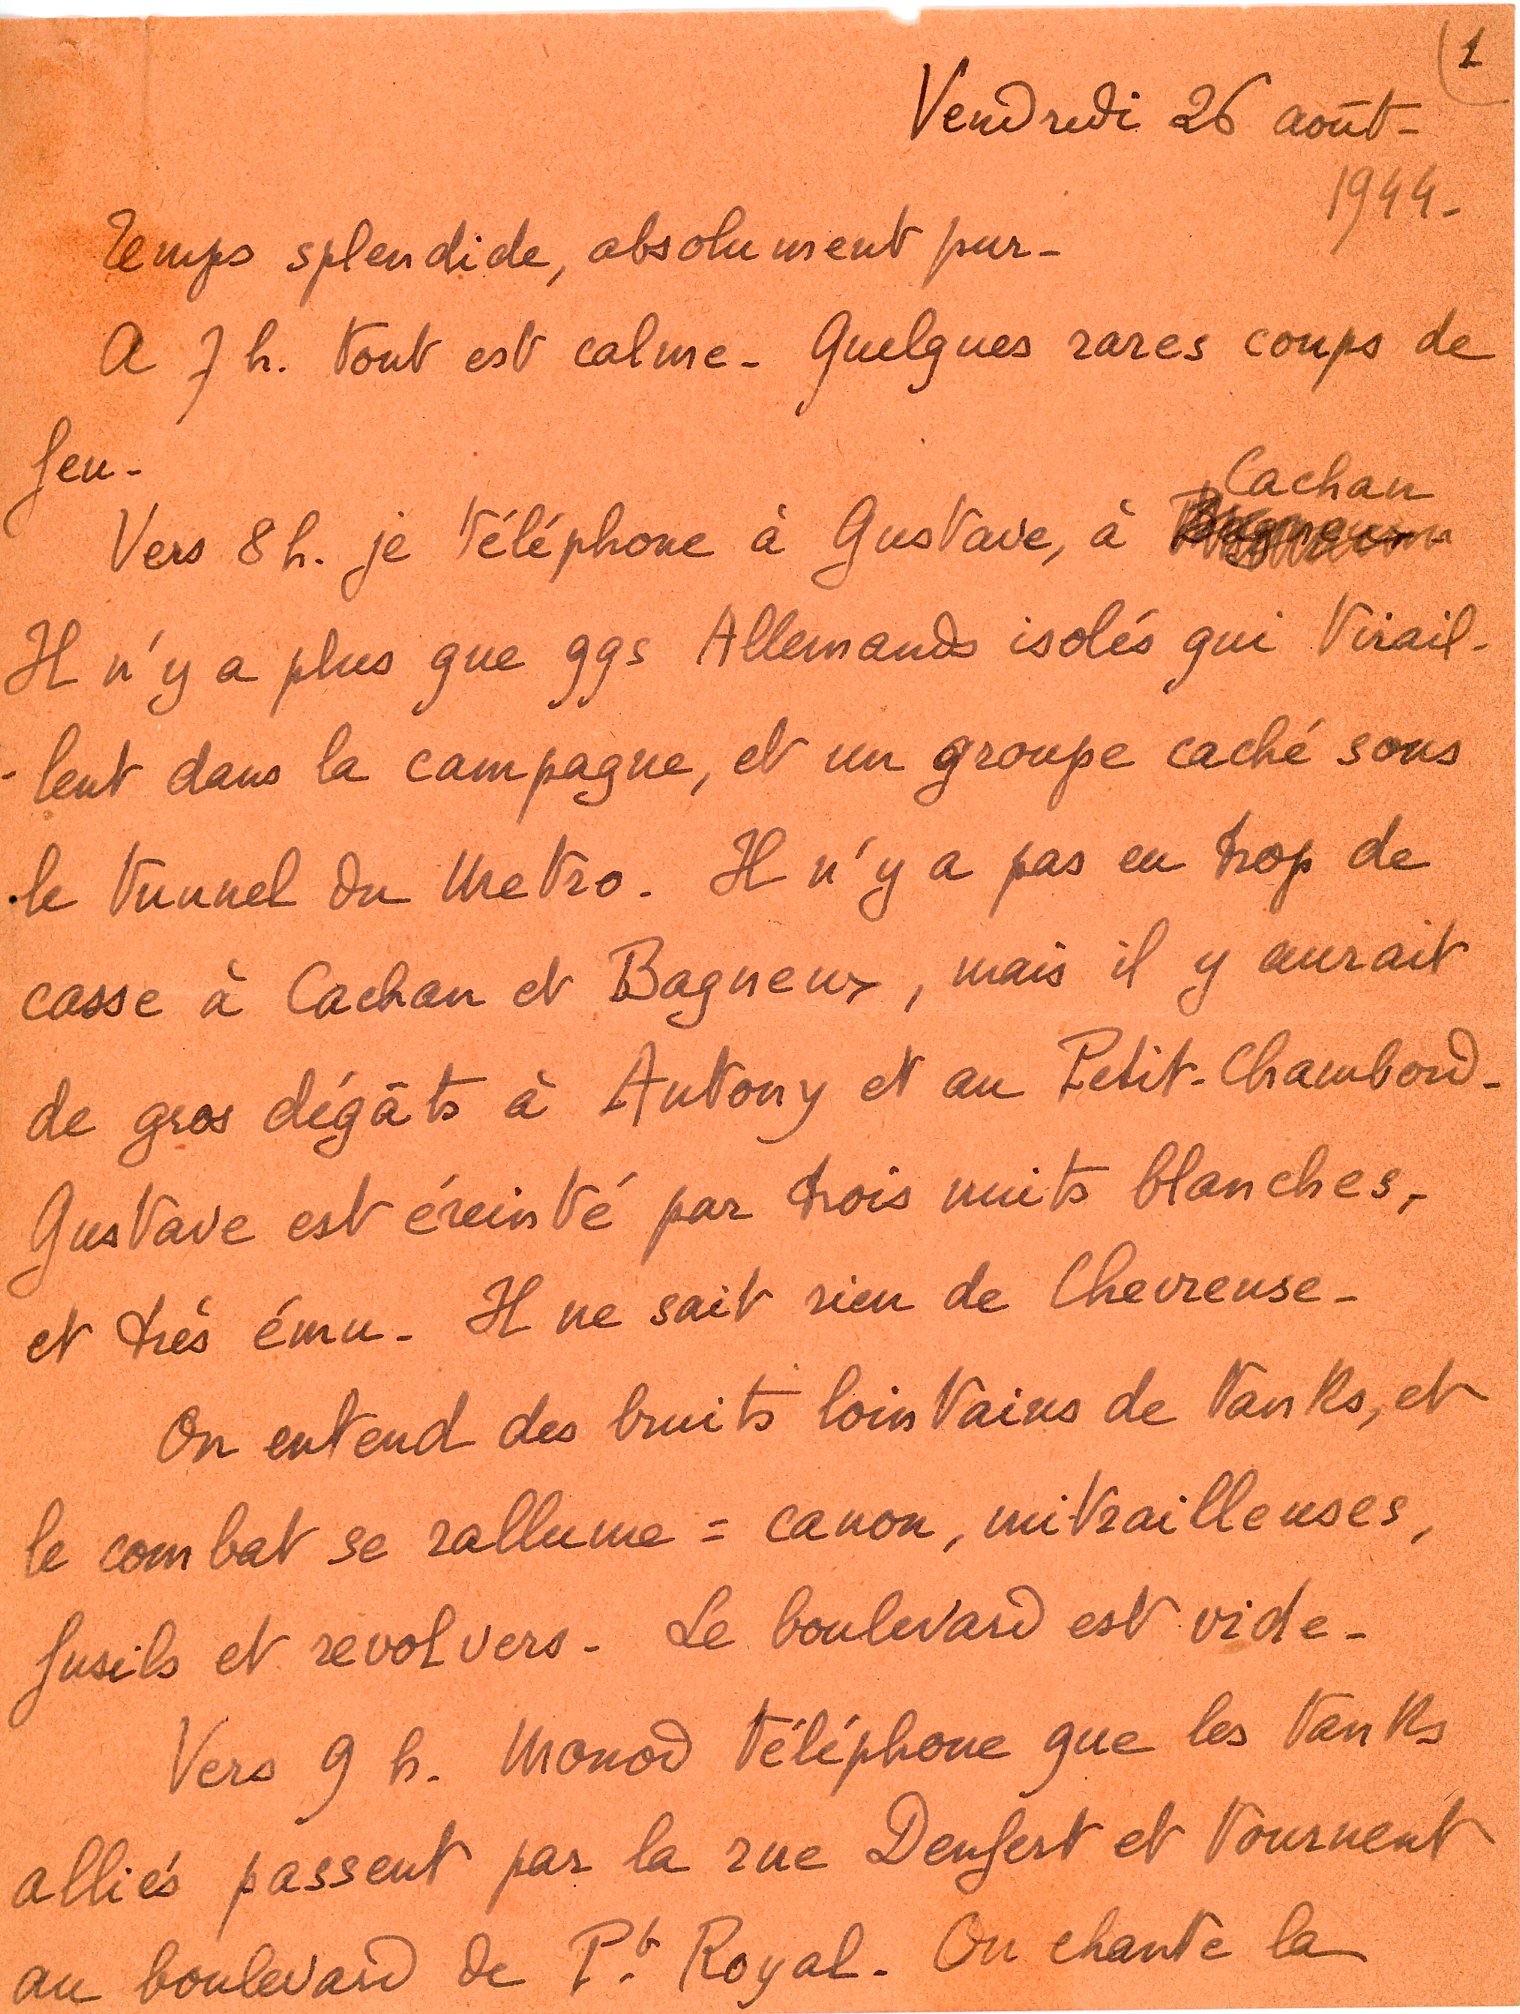 1
Vendredi 26 août -
1944 -
Temps splendide, absolument pur -
A 7 h. tout est calme - Quelques rares coups de
feu -
Cachan
Vers 8 h. je téléphone à Gustave, à Bagneux
Il n'y a plus que qqs Allemands isolés qui tirail-
- lent dans la campagne, et un groupe caché sous
le tunnel du Metro. Il n'y a pas eu trop de
casse à Cachan et Bagneux, mais il y aurait
de gros dégâts à Antony et au Petit-Chambord -
Gustave est éreinté par trois nuits blanches,
et très ému - Il ne sait rien de Chevreuse -
On entend des bruits lointains de tanks, et
le combat se rallume = canon, mitrailleuses,
fusils et revolvers - Le boulevard est vide -
Vers 9 h. Monod téléphone que les tanks
alliés passent par la rue Denfert et tournent
au boulevard de Pt. Royal - On chante la